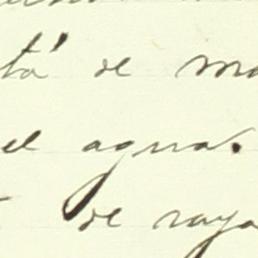 tá de ma
el agua.
de raya